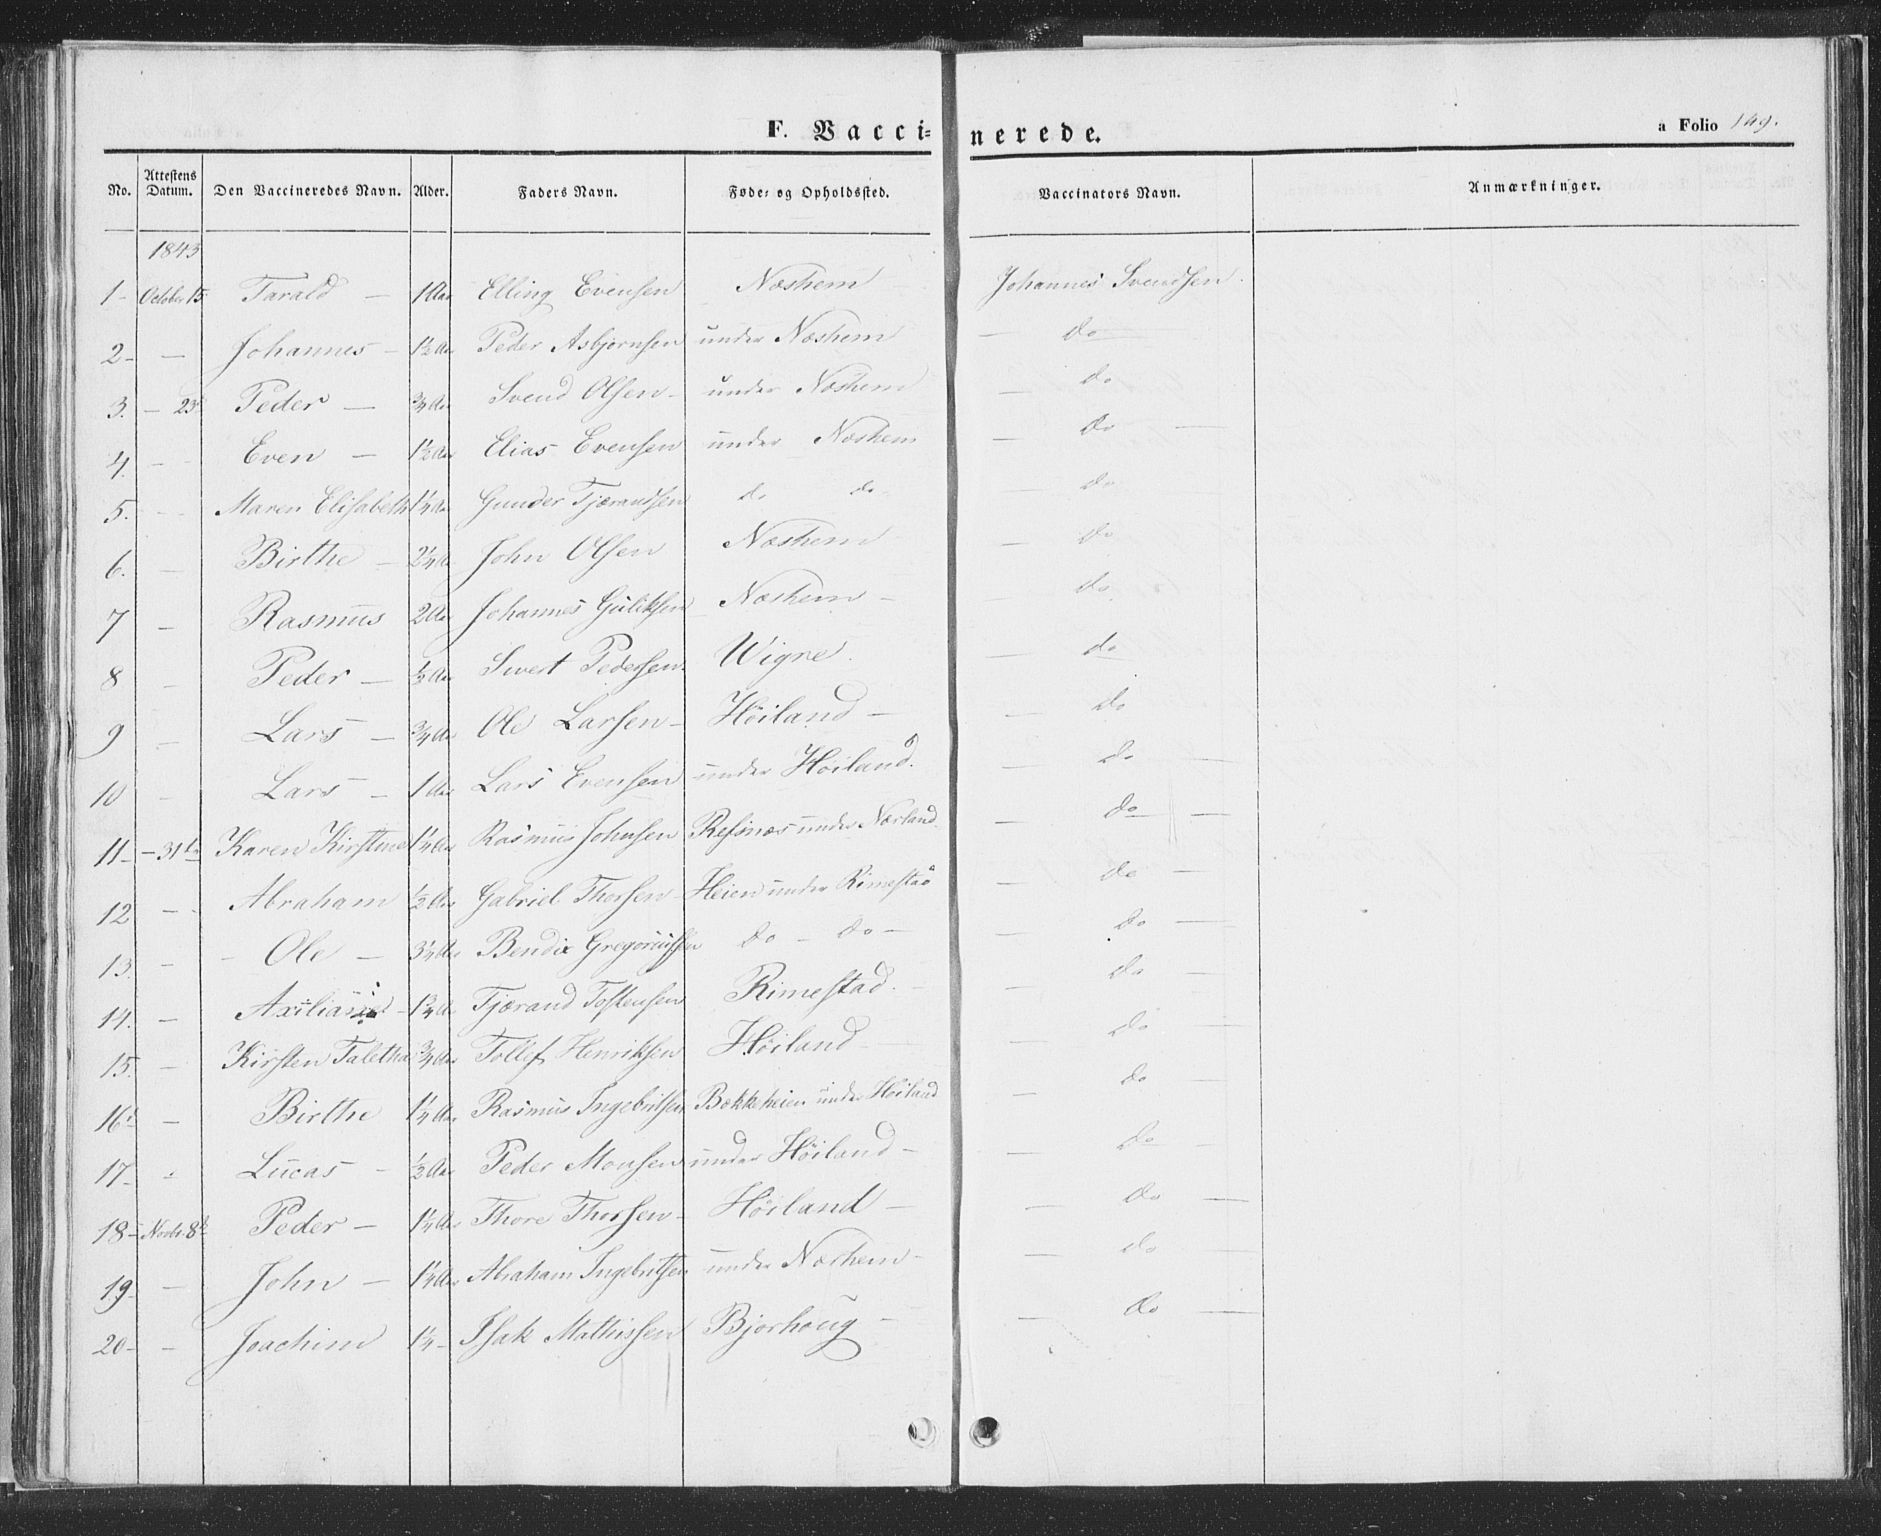 F. Vacci=
nerede.
a Folio 149.
No. Attestens Datum. Den Vaccineredes Navn. Alder. Faders Navn. Føde= og Opholdssted. Vaccinators Navn. Anmærkninger.
1843
1- October 15 Tarald - 1 Aar Elling Evensen Næshem Johannes Svendsen.
2- - Johannes - 1½ Aar Peder Asbjørnsen under Næshem - do
3. - 25 Peder - ¾ Aar Svend Olsen - under Næshem - do
4. - - Even - 1½ Aar Elias Evensen under Næshem - do -
5. - - Maren Elisabeth 1¼ Aar Gunder Tjærandsen do do - - do
6. - Birthe - 2¼ Aar John Olsen Næshem - do
7 - Rasmus 2 Aar Johannes Guliksen Næshem - - do
8 - Peder - ½ Aar Sivert Pedersen Wigre. - do
9 - Lars - ¾ Aar Ole Larsen - Höiland - - do
10 - Lars - 1 Aar Lars Evensen under Höiland. - do -
11- - 31te Karen Kirstine 1¼ Aar Rasmus Johnsen Refsnæs under Nærland - do -
12 - - Abraham ½ Aar Gabriel Thorsen - Heien under Rimestad - do -
13. - - Ole - 3¼ Aar Bendix Gregoriussen do - do - - do -
14. - Axilias - 1¾ A Tjærand Tostensen Rimestad. - - do -
15. - Kirsten Taletha ¾ Aar Tollef Henriksen Höiland - - do -
16. - Birthe 1¼ Aar Rasmus Ingebritsen Bækkeheien under Höiland - do -
17- - Lucas - ½ Aar Peder Monsen under Höiland - - do -
18- Novbr. 8de Peder - 1¼ Aar Thore Thorsen - Höiland - - do -
19- - John - 1¼ Aar Abraham Ingebritsen under Næshem - - do -
20- - Joachim 1¼ - Isak Mathissen Bjorhoug - - do -